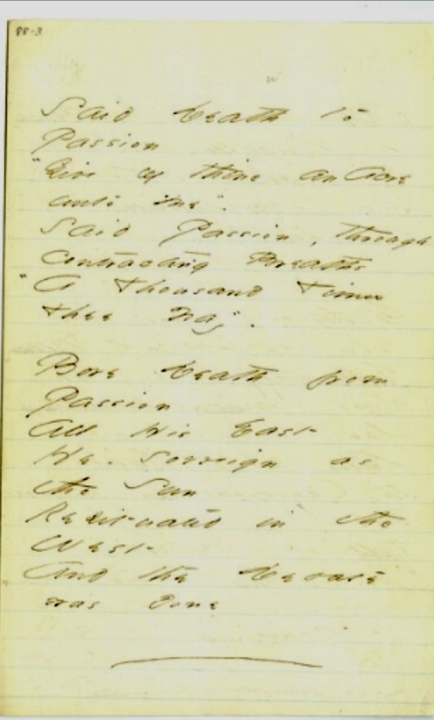 88-3
Said Death to
Passion
"Give of thine an Acre
unto me".
Said Passion, through
contracting Breaths
"A thousand Times
thee Nay".
Bore Death from
Passion
All His East
He - sovreign as
the Sun
Resituated in the
West
And the Debate
was done